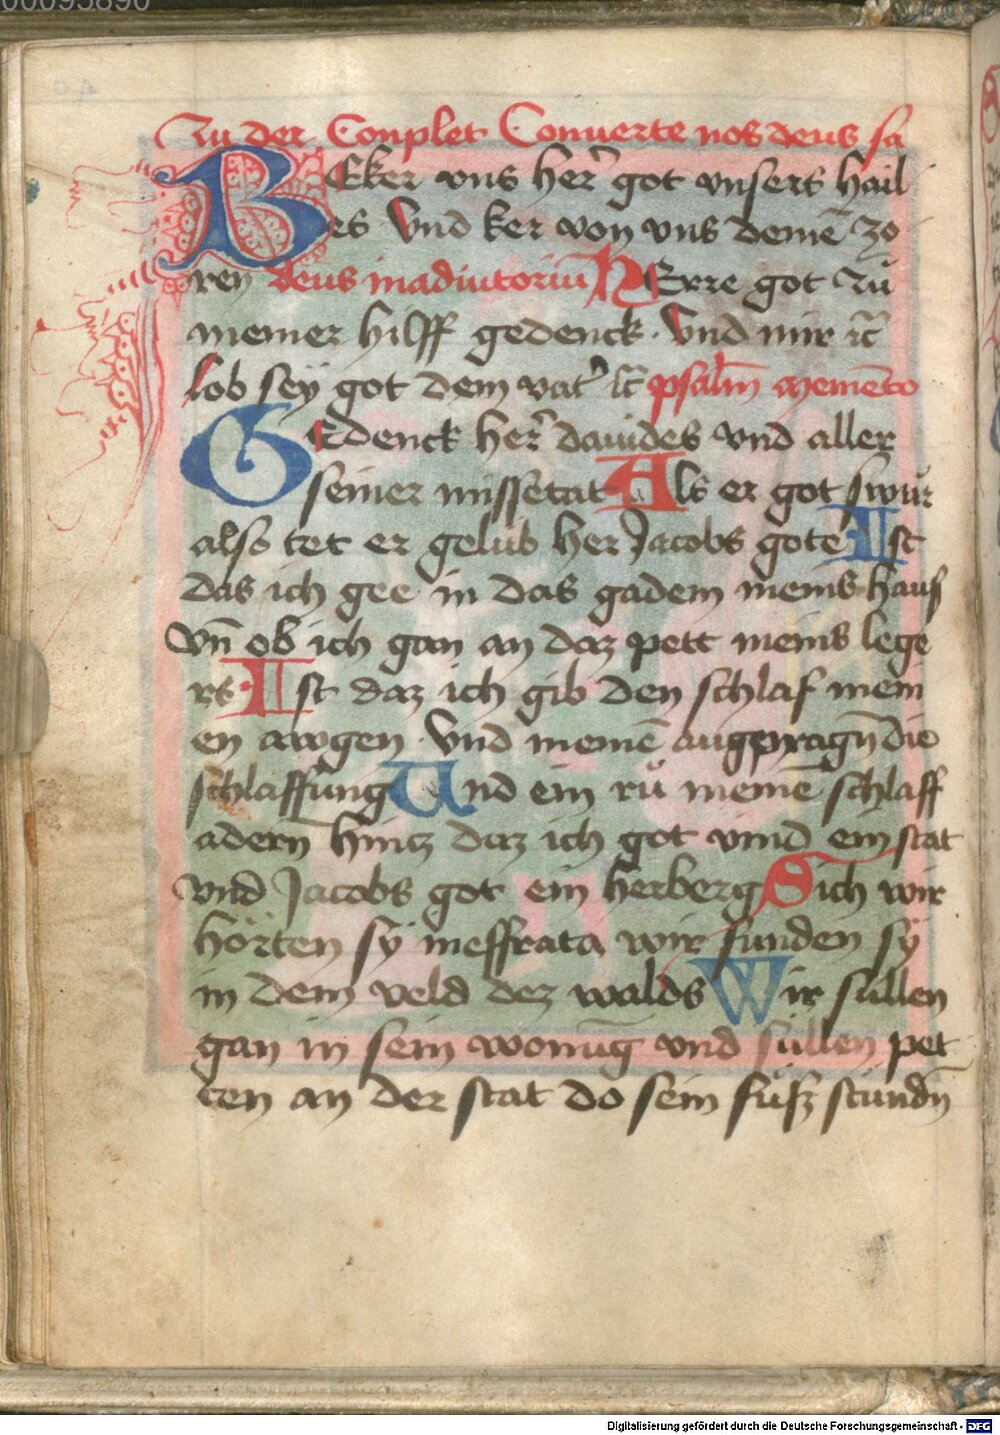 00095890
Zu der Conplet Conuerte nos deus sa
BEker vns her̄ got vnsers hail
es Vnd ker von vns deinē zo
ren deus inadiutoriū HErre got zu
meiner hilff gedenck · Vnd mir ꝛc̄
lob sey got dem vat᷑ ꝛc̄ psalm̄ Memēto
GEdenck her̄ dauides vnd aller
seiner missetat Als er got swůr
also tet er gelüb her Jacobs gote Ist
das ich gee in das gadem meins haus
Vn̄ ob ich gan an daz pett meins lege
rs · Ist daz ich gib den schlaf mein
en awgen · Vnd meinē augpragn̄ die
schlaffung Und ein rů meinē schlaff
adern hincz daz ich got vind ein stat
vnd Jacobs got ein herberg Sich wir
hörten sÿ in effrata wir funden sÿ
in dem veld dez walds Wir sullen
gan in sein wonūg vnd süllen pet
ten an der stat do sein füsz stündn̄
Digitalisierung gefördert durch die Deutsche Forschungsgemeinschaft - DFG